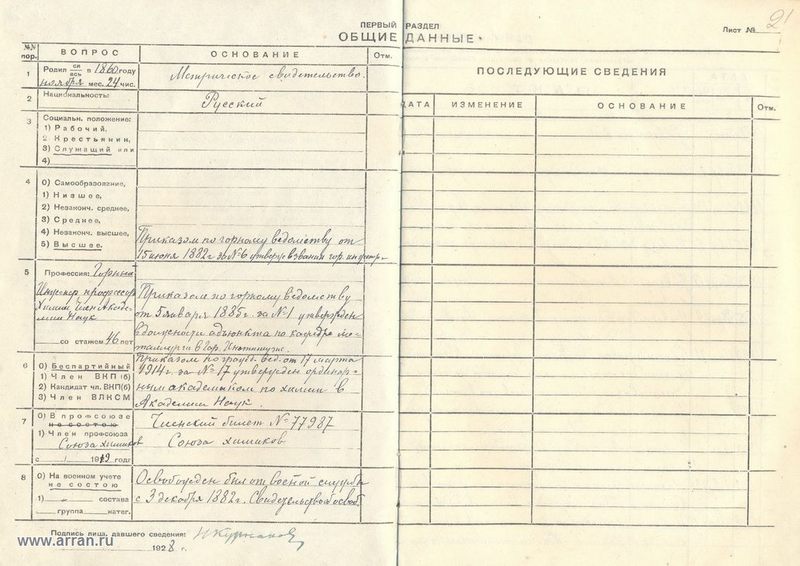 ПЕРВЫЙ РАЗДЕЛ
ОБЩИЕ ДАННЫЕ
Лист №
21
№№ пор.
ВОПРОС
ОСНОВАНИЕ
Отм.
1
Родил ся ась в 1860 году
ноября мес. 24 чис.
Метрическое свидетельство.
2
Национальность:
Русский
3
Социальн. положение:
1) Рабочий.
2) Крестьянин.
3) Служащий или
4)
4
0) Самообразование,
1) Низшее,
2) Незаконч. среднее,
3) Среднее,
4) Незаконч. высшее,
5) Высшее.
Приказом по горному ведомству от
15 июня 1882 г. за № 6 утвер в звании гор. инженер.
5
Профессия: Горный
Инженер профессор
Химии Член Академии Наук
со стажем 46 лет
Приказом по горному ведомству
от 5 января 1885 г. за № 1 утвержден
в должности адъюнкта по кафедре металлургии в Гор. Институте.
6
0) Беспартийный
1) Член ВКП (б)
2) Кандидат чл. ВКП(б)
3) Член ВЛКСМ
Приказом по гражд. вед. от 17 марта
1914 г. за № 17 утвержден ординарным академиком по химии в
Академии Наук.
7
0) В профсоюзе
не состою
1) Член профсоюза
Союза химиков
с 1919 года
Членский билет № 77987
Союза химиков
8
0) На военном учете
не состою
1) " состава
группа катег.
Освобожден был от военной службы
с 3 декабря 1882 г. Свидетельством освоб.
Подпись лица, давшего сведения: Н Курнаков
1928 г.
ПОСЛЕДУЮЩИЕ СВЕДЕНИЯ
ДАТА
ИЗМЕНЕНИЕ
ОСНОВАНИЕ
Отм.
www.arran.ru